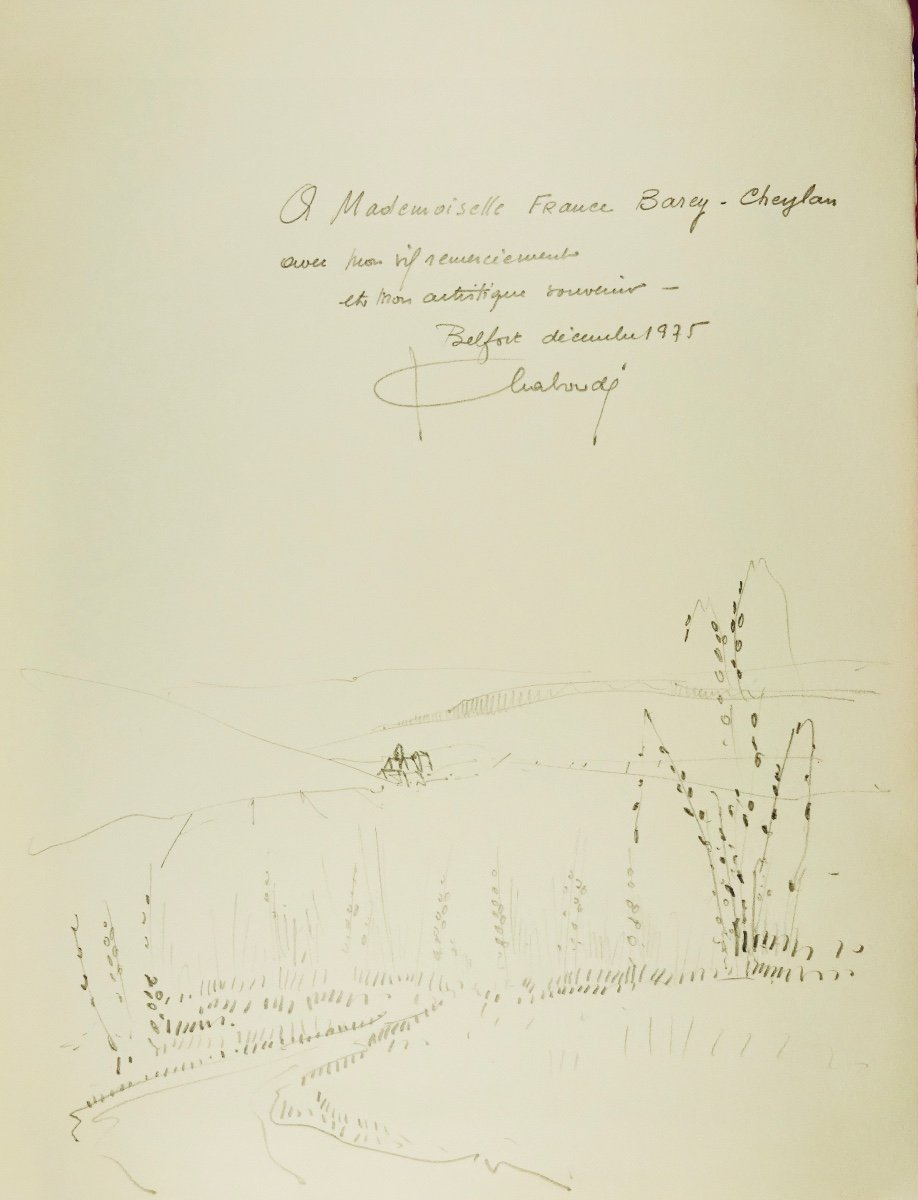 A Mademoiselle France Barey-Cheylan
avec mon vif remerciement
et mon artistique souvenir —
Belfort décembre 1975
Chaboudé